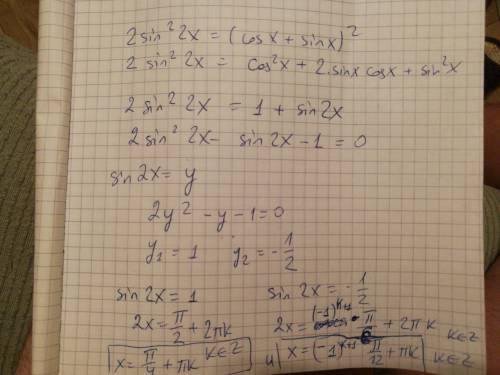 2 sin² 2x = (cos x + sin x)²
2 sin² 2x = cos²x + 2·sinx cosx + sin²x
2 sin² 2x = 1 + sin 2x
2 sin² 2x - sin 2x - 1 = 0
sin 2x = y
2y² - y - 1 = 0
y₁ = 1 y₂ = -1/2
sin 2x = 1
2x = π/2 + 2πk
x = π/4 + πk k∈Z
sin 2x = -1/2
2x = (-1)^(k+1) · π/6 + 2πk k∈Z
и x = (-1)^(k+1) π/12 + πk k∈Z